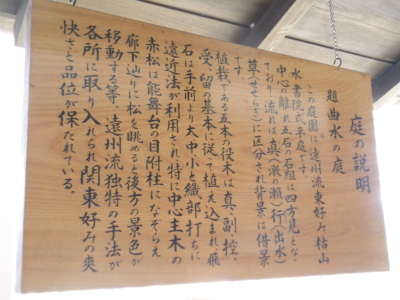 庭の説明
題 曲水の庭
この庭園は遠州流東好み枯山
水書院式平庭です。
中心の離れ五石の石組は四方見とな
っており 流れは真(激の瀬)行(出水)
草(せせらぎ)に区分され背景は借景
です。
植栽である五本の役木は真、副、控、
受、留の基本に従って植え込まれ、飛
石は手前より大中小と織部打ちに
遠近法が利用され特に中心主木の
赤松は能舞台の目附柱になぞらえ
廊下辺りに松を眺めると後方の景色が
移動する等、遠州流独特の手法が
各所に取り入れられ関東好みの爽
快さと品位が保たれている。